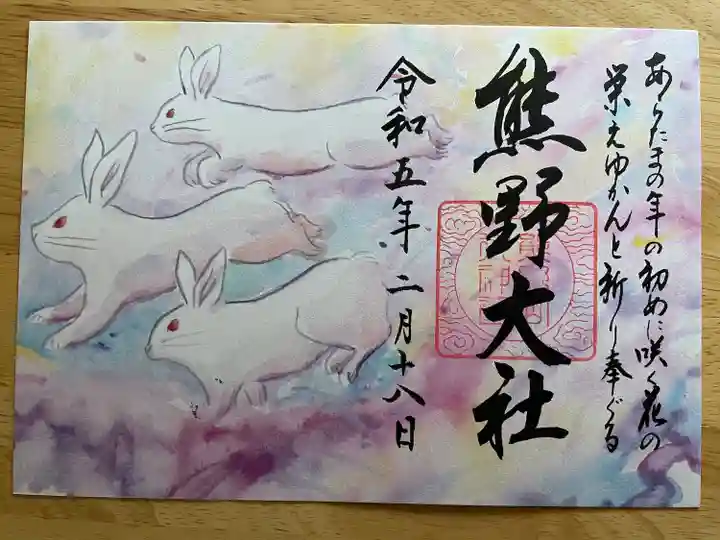 あらたまの年の初めに咲く花の
栄えゆかんと祈り奉ぐる
熊野大社
令和五年二月十八日